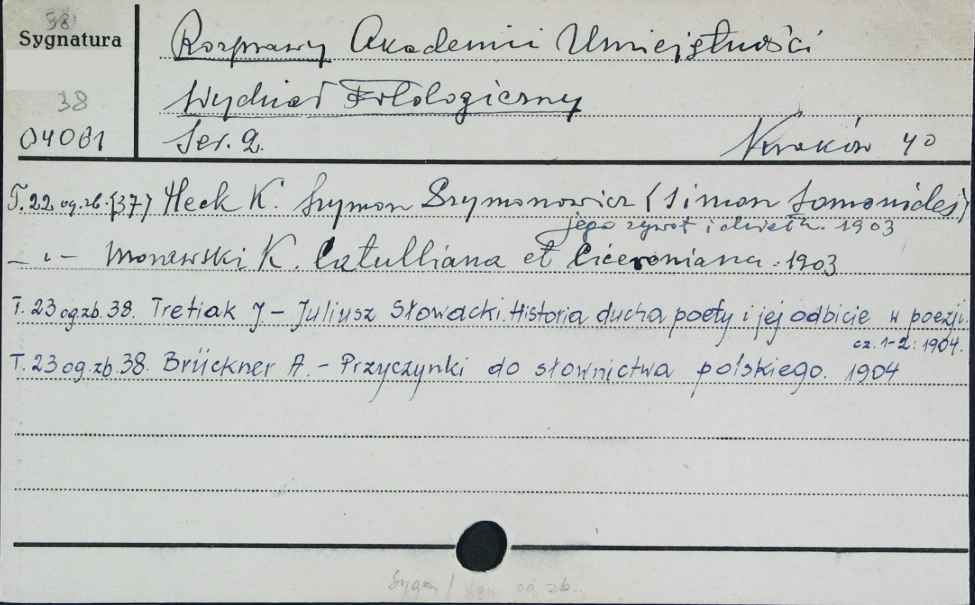 38
Sygnatura
38
04061
Rozprawy Akademii Umiejętności
Wydział Filologiczny
Ser. 2. Kraków 40
T. 22 og. zb. (37) Heck K. Szymon Szymonowicz (Simon Simonides)
jego żywot i dzieła. 1903
– „ – Morawski K. Catulliana et Ciceroniana. 1903
T. 23 og zb. 38. Tretiak J – Juliusz Słowacki. Historia ducha poety i jej odbicie w poezji.
cz. 1-2: 1904.
T. 23 og. zb. 38. Brückner A. – Przyczynki do słownictwa polskiego. 1904
og zb.